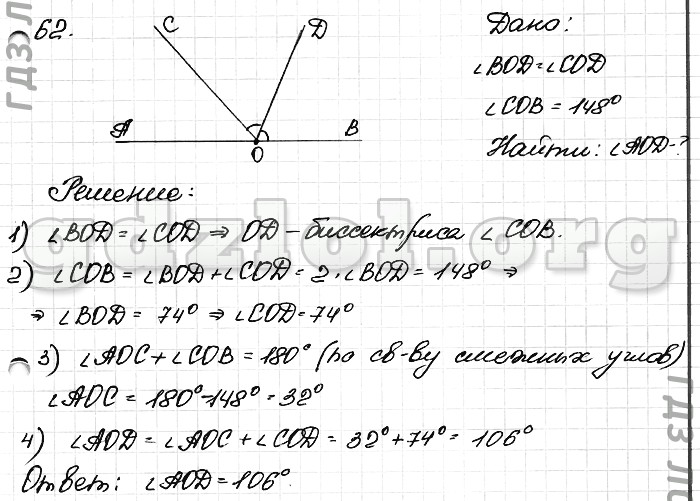 62.
C
D
A
O
B
Дано:
∠BOD=∠COD
∠COB = 148°
Найти: ∠AOD-?
Решение:
1) ∠BOD = ∠COD ⇒ OD – биссектриса ∠COB.
2) ∠COB = ∠BOD + ∠COD = 2·∠BOD = 148° ⇒
⇒ ∠BOD = 74° ⇒ ∠COD=74°
3) ∠AOC + ∠COB = 180° (по св-ву смежных углов)
∠AOC = 180°-148° = 32°
4) ∠AOD = ∠AOC + ∠COD = 32° + 74° = 106°
Ответ: ∠AOD = 106°.
gdzlol.org
ГДЗ Л
ГДЗ ЛО